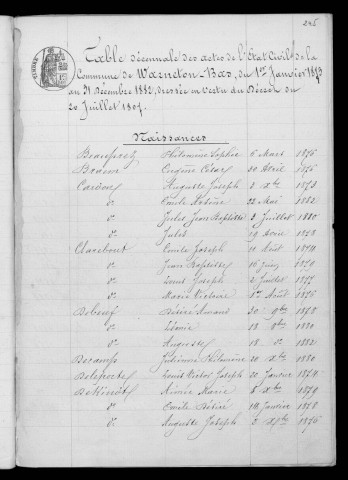 245
Table décennale des actes de l'Etat Civil de la
Commune de Warneton-Bas, du 1er Janvier 1873
au 31 Décembre 1882, dressée en vertu du Décret du
20 Juillet 1807.
Naissances
Philomène Sophie 6 Mars 1876
Braem Eugène César 30 Avril 1876
Cardon Auguste Joseph 2 Xbre 1873
do Emile Antoine 22 Mai 1882
do Jules Jean Baptiste 3 Juillet 1880
do Jules 19 Avril 1878
Clarebout Emile Joseph 10 Août 1874
do Jean Baptiste 16 Juin 1879
do Louis Joseph 2 Juillet 1877
do Marie Victoire 1er Août 1875
Debeuf Désiré Amand 30 9bre 1878
do Léonie 13 8bre 1880
do Auguste 18 do 1882
Decamps Julienne Philomène 20 Xbre 1880
Delaporte Louis Victor Joseph 20 Janvier 1874
Aimée Marie 8 Xbre 1879
do Emile Désiré 18 Janvier 1878
do Auguste Joseph 2 Xbre 1875